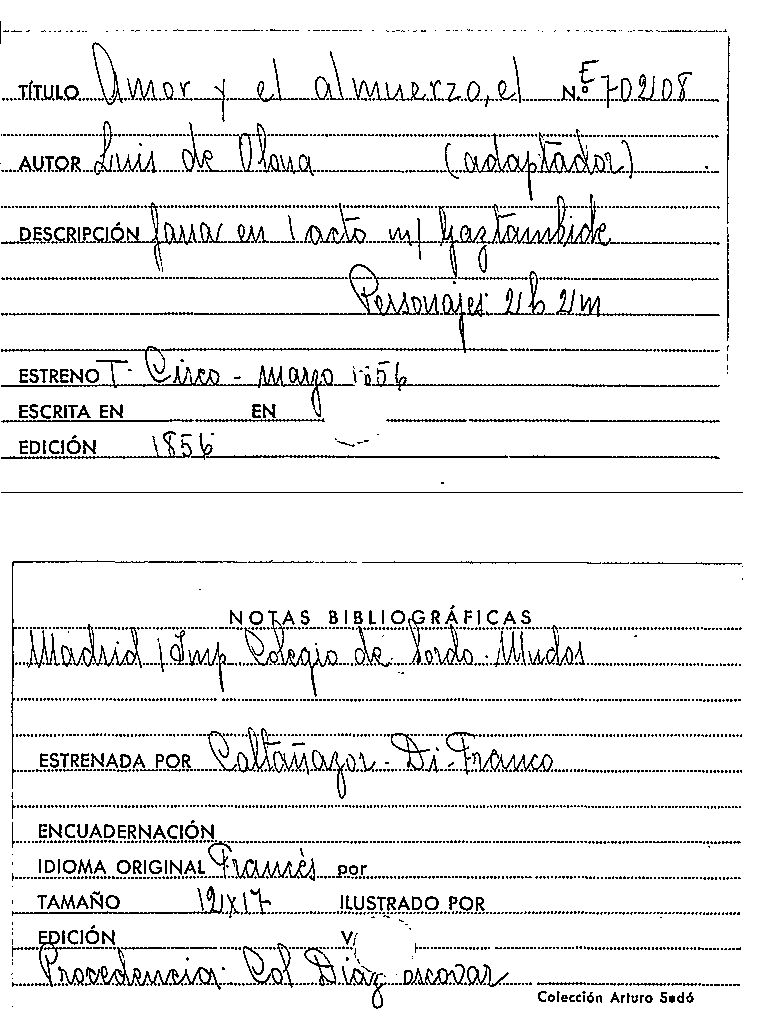 TÍTULO Amor y el almuerzo, el N.º E 702108
AUTOR Luis de Olona (adaptador)
DESCRIPCIÓN farsa en 1 acto m/ Gaztambide
Personajes: 2 h 2 m
ESTRENO T. Circo - marzo 1856
ESCRITA EN EN
EDICIÓN 1856
NOTAS BIBLIOGRÁFICAS
Madrid / Imp Colegio de Sordo-Mudos
ESTRENADA POR Caltañazor - Di-Franco
ENCUADERNACIÓN
IDIOMA ORIGINAL Francés por
TAMAÑO 12x17 ILUSTRADO POR
EDICIÓN V
Procedencia: Col Díaz escovar
Colección Arturo Sedó